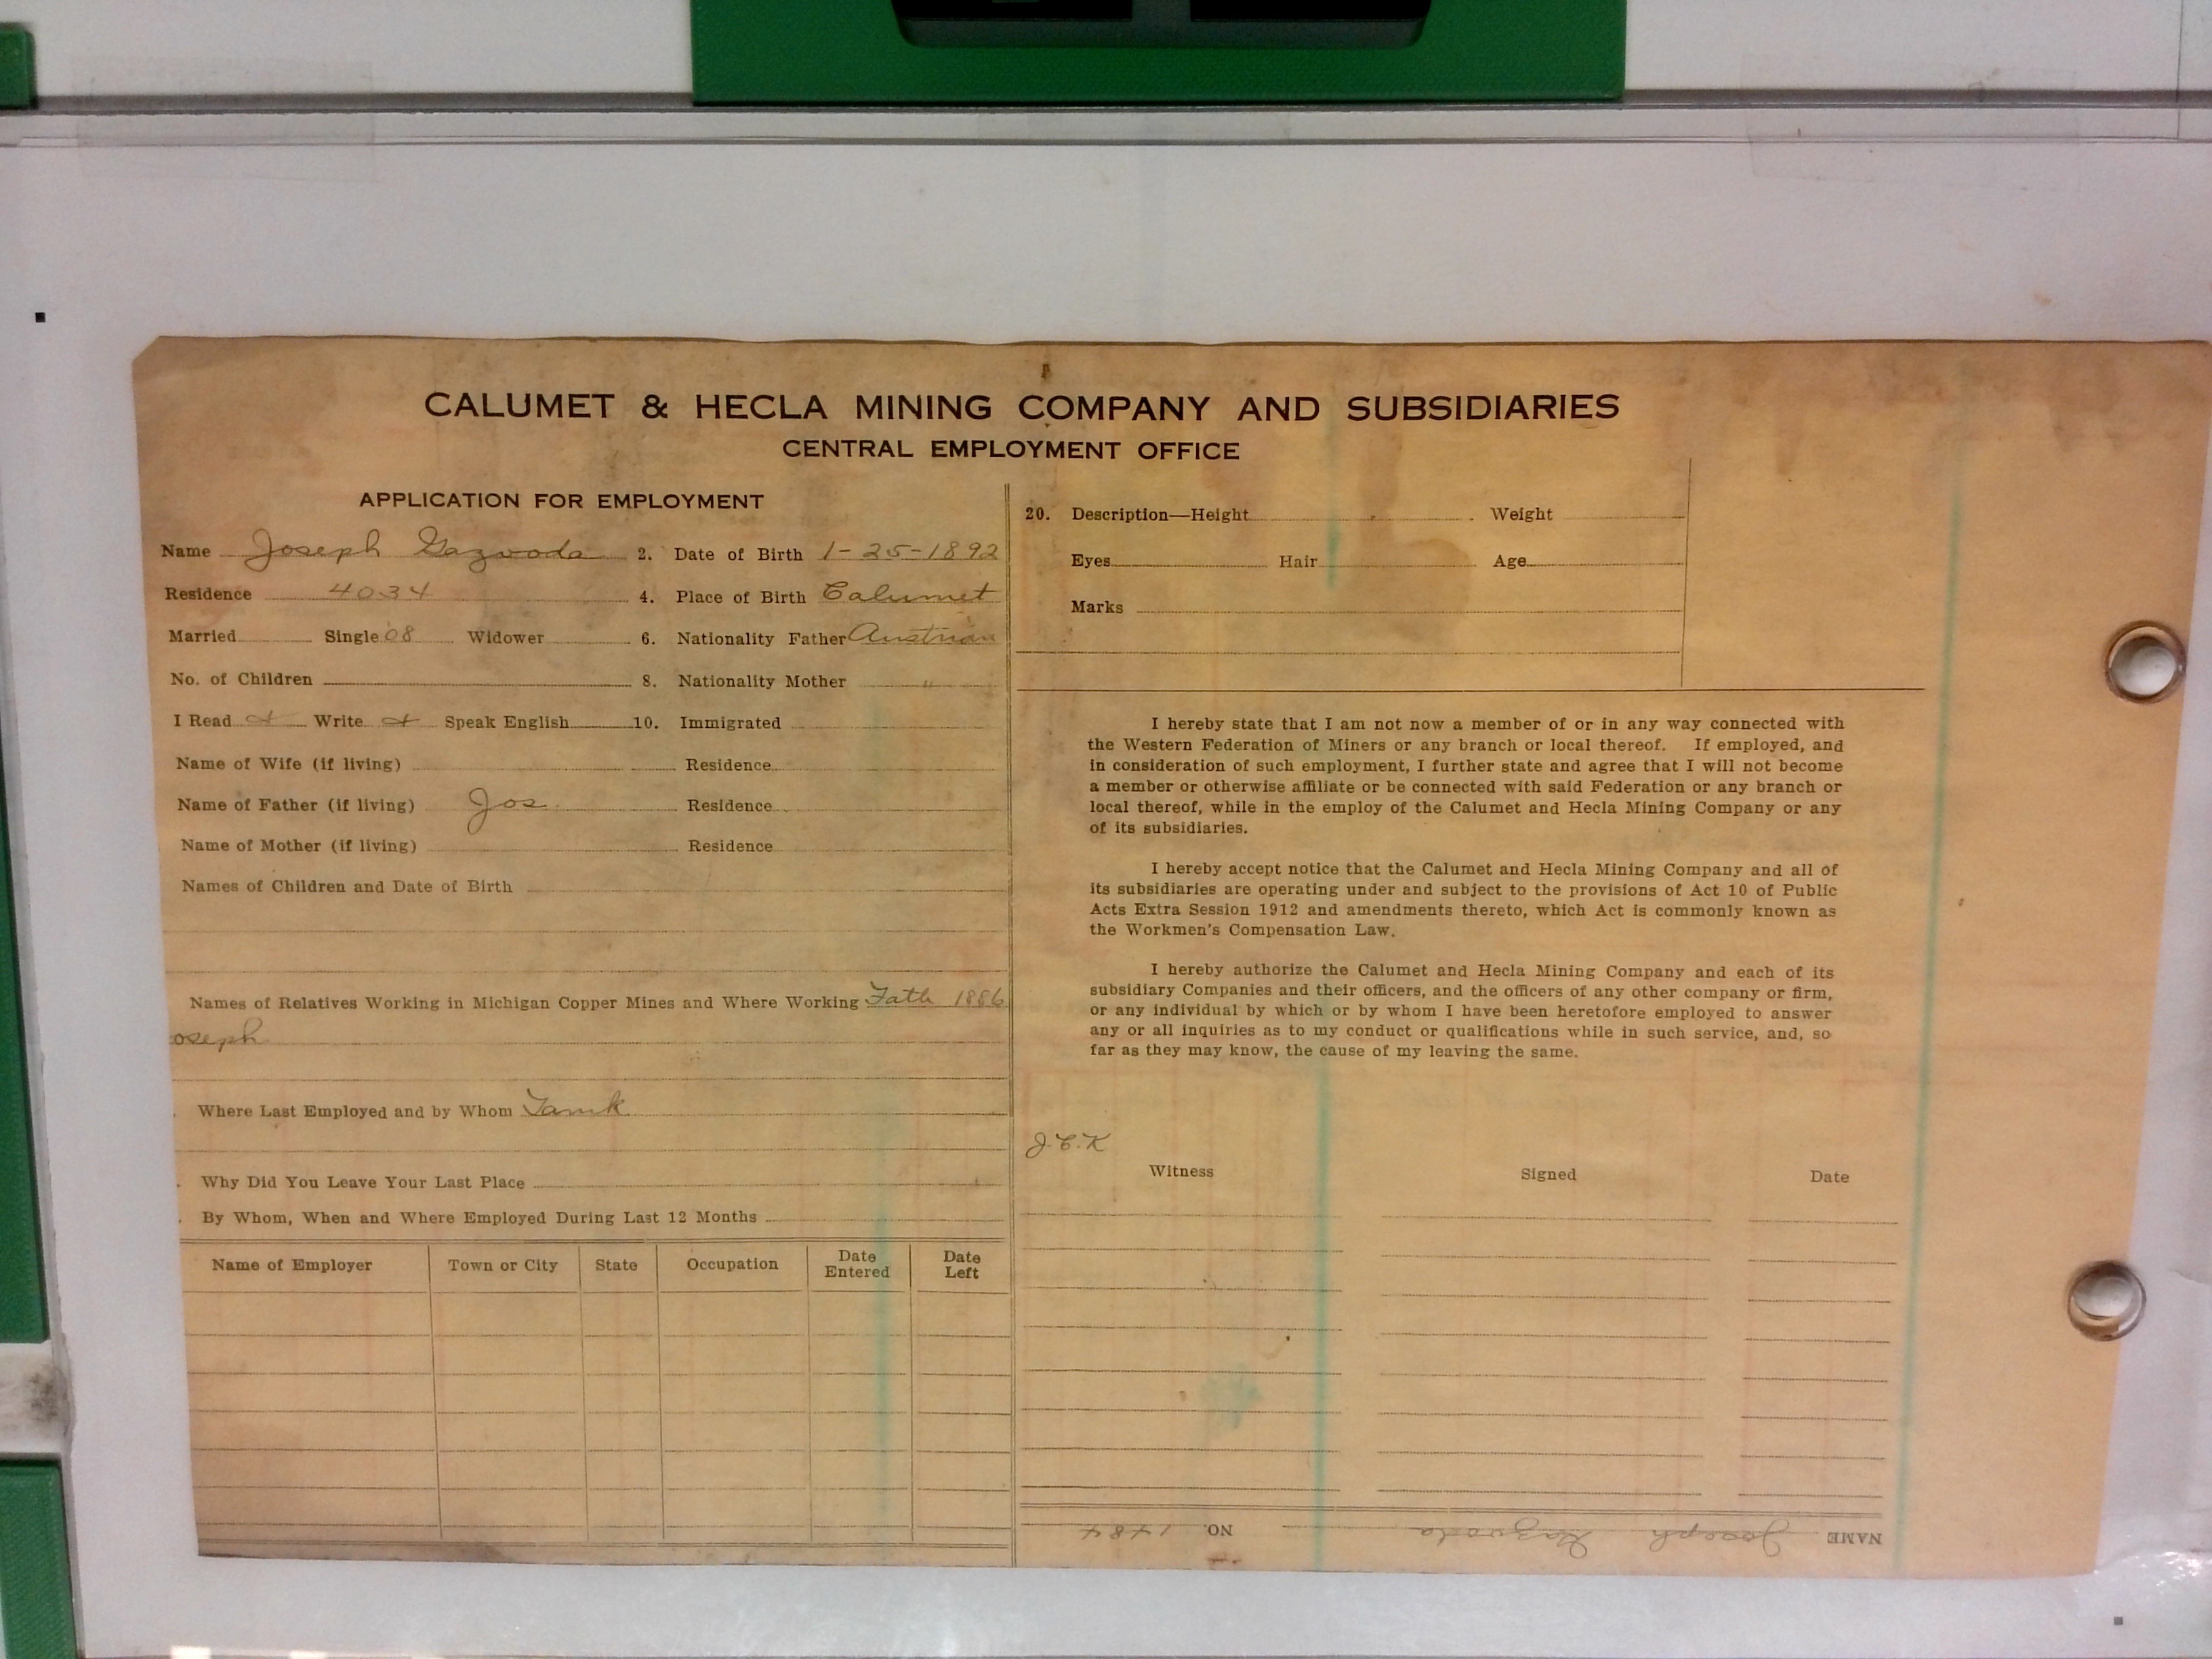 CALUMET & HECLA MINING COMPANY AND SUBSIDIARIES
CENTRAL EMPLOYMENT OFFICE
APPLICATION FOR EMPLOYMENT
Name Joseph Gazvoda 2. Date of Birth 1-25-1892
Residence 4034 4. Place of Birth Calumet
Married Single 08 Widower 6. Nationality Father Austrian
No. of Children 8. Nationality Mother "
I Read Write Speak English 10. Immigrated
Name of Wife (if living) Residence
Name of Father (if living) Jos. Residence
Name of Mother (if living) Residence
Names of Children and Date of Birth
Names of Relatives Working in Michigan Copper Mines and Where Working Fath 1886
oseph
Where Last Employed and by Whom Tamk
Why Did You Leave Your Last Place
By Whom, When and Where Employed During Last 12 Months
Name of Employer Town or City State Occupation Date Entered Date Left
20. Description—Height Weight
Eyes Hair Age
Marks
I hereby state that I am not now a member of or in any way connected with
the Western Federation of Miners or any branch or local thereof. If employed, and
in consideration of such employment, I further state and agree that I will not become
a member or otherwise affiliate or be connected with said Federation or any branch or
local thereof, while in the employ of the Calumet and Hecla Mining Company or any
of its subsidiaries.
I hereby accept notice that the Calumet and Hecla Mining Company and all of
its subsidiaries are operating under and subject to the provisions of Act 10 of Public
Acts Extra Session 1912 and amendments thereto, which Act is commonly known as
the Workmen's Compensation Law.
I hereby authorize the Calumet and Hecla Mining Company and each of its
subsidiary Companies and their officers, and the officers of any other company or firm,
or any individual by which or by whom I have been heretofore employed to answer
any or all inquiries as to my conduct or qualifications while in such service, and, so
far as they may know, the cause of my leaving the same.
J.C.K
Witness Signed Date
NAME Joseph Gazvoda NO. 1484